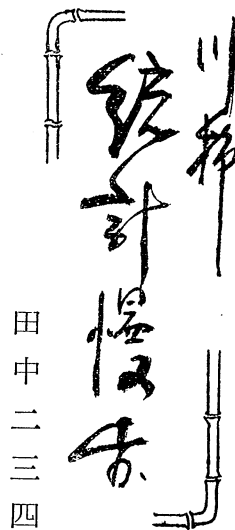 川柳
統計漫歩
田中二三四